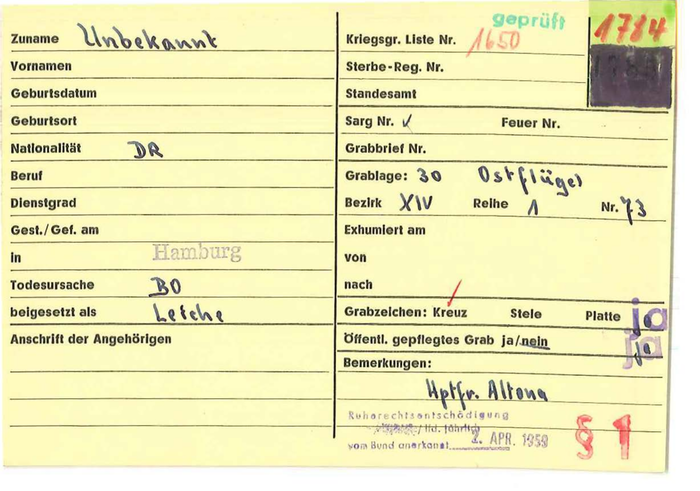 Zuname Unbekannt
Vornamen
Geburtsdatum
Geburtsort
Nationalität DR
Beruf
Dienstgrad
Gest./Gef. am
in Hamburg
Todesursache BO
beigesetzt als Leiche
Anschrift der Angehörigen
geprüft
1784
Kriegsgr. Liste Nr. 1650
Sterbe-Reg. Nr.
Standesamt
Sarg Nr. ✓ Feuer Nr.
Grabbrief Nr.
Grablage: 30 Ostflügel
Bezirk XIV Reihe 1 Nr. 73
Exhumiert am
von
nach
Grabzeichen: Kreuz Stele Platte ja
Öffentl. gepflegtes Grab ja/nein ja
Bemerkungen:
Hptfr. Altona
Ruherechtsentschädigung
/ lfd. jährlich
vom Bund anerkannt 2. APR. 1959
§ 1